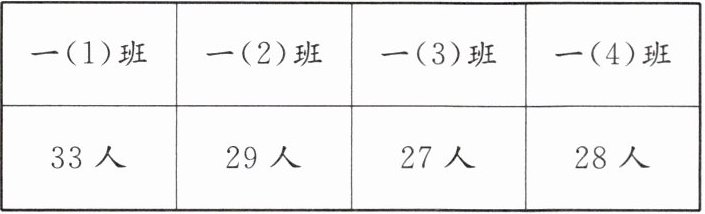 一(1)班 一(2)班 一(3)班 一(4)班
33 人 29 人 27 人 28 人